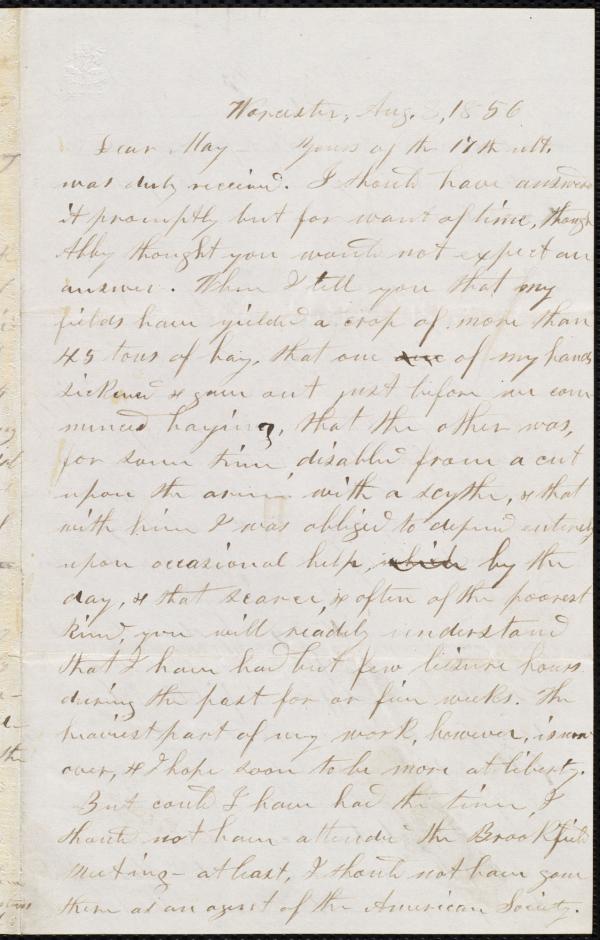 Worcester, Aug. 8, 1856
Dear May – Yours of the 17th ult.
was duly received. I should have answered
it promptly but for want of time, though
Abby thought you would not expect an
answer. When I tell you that my
fields have yielded a crop of more than
45 tons of hay, that one of my hands
sickened & gave out just before we com
menced haying, that the other was,
for some time, disabled from a cut
upon the arm with a scythe, & that
with him I was obliged to depend entirely
upon occasional help, which by the
day, & that scarce, & often of the poorest
kind, you will readily understand
that I have had but few leisure hours
during the past four or five weeks. The
heaviest part of my work, however, is now
over, & I hope soon to be more at liberty.
But could I have had the time, I
should not have attended the Brookfield
meeting – at least, I should not have gone
there as an agent of the American Society.